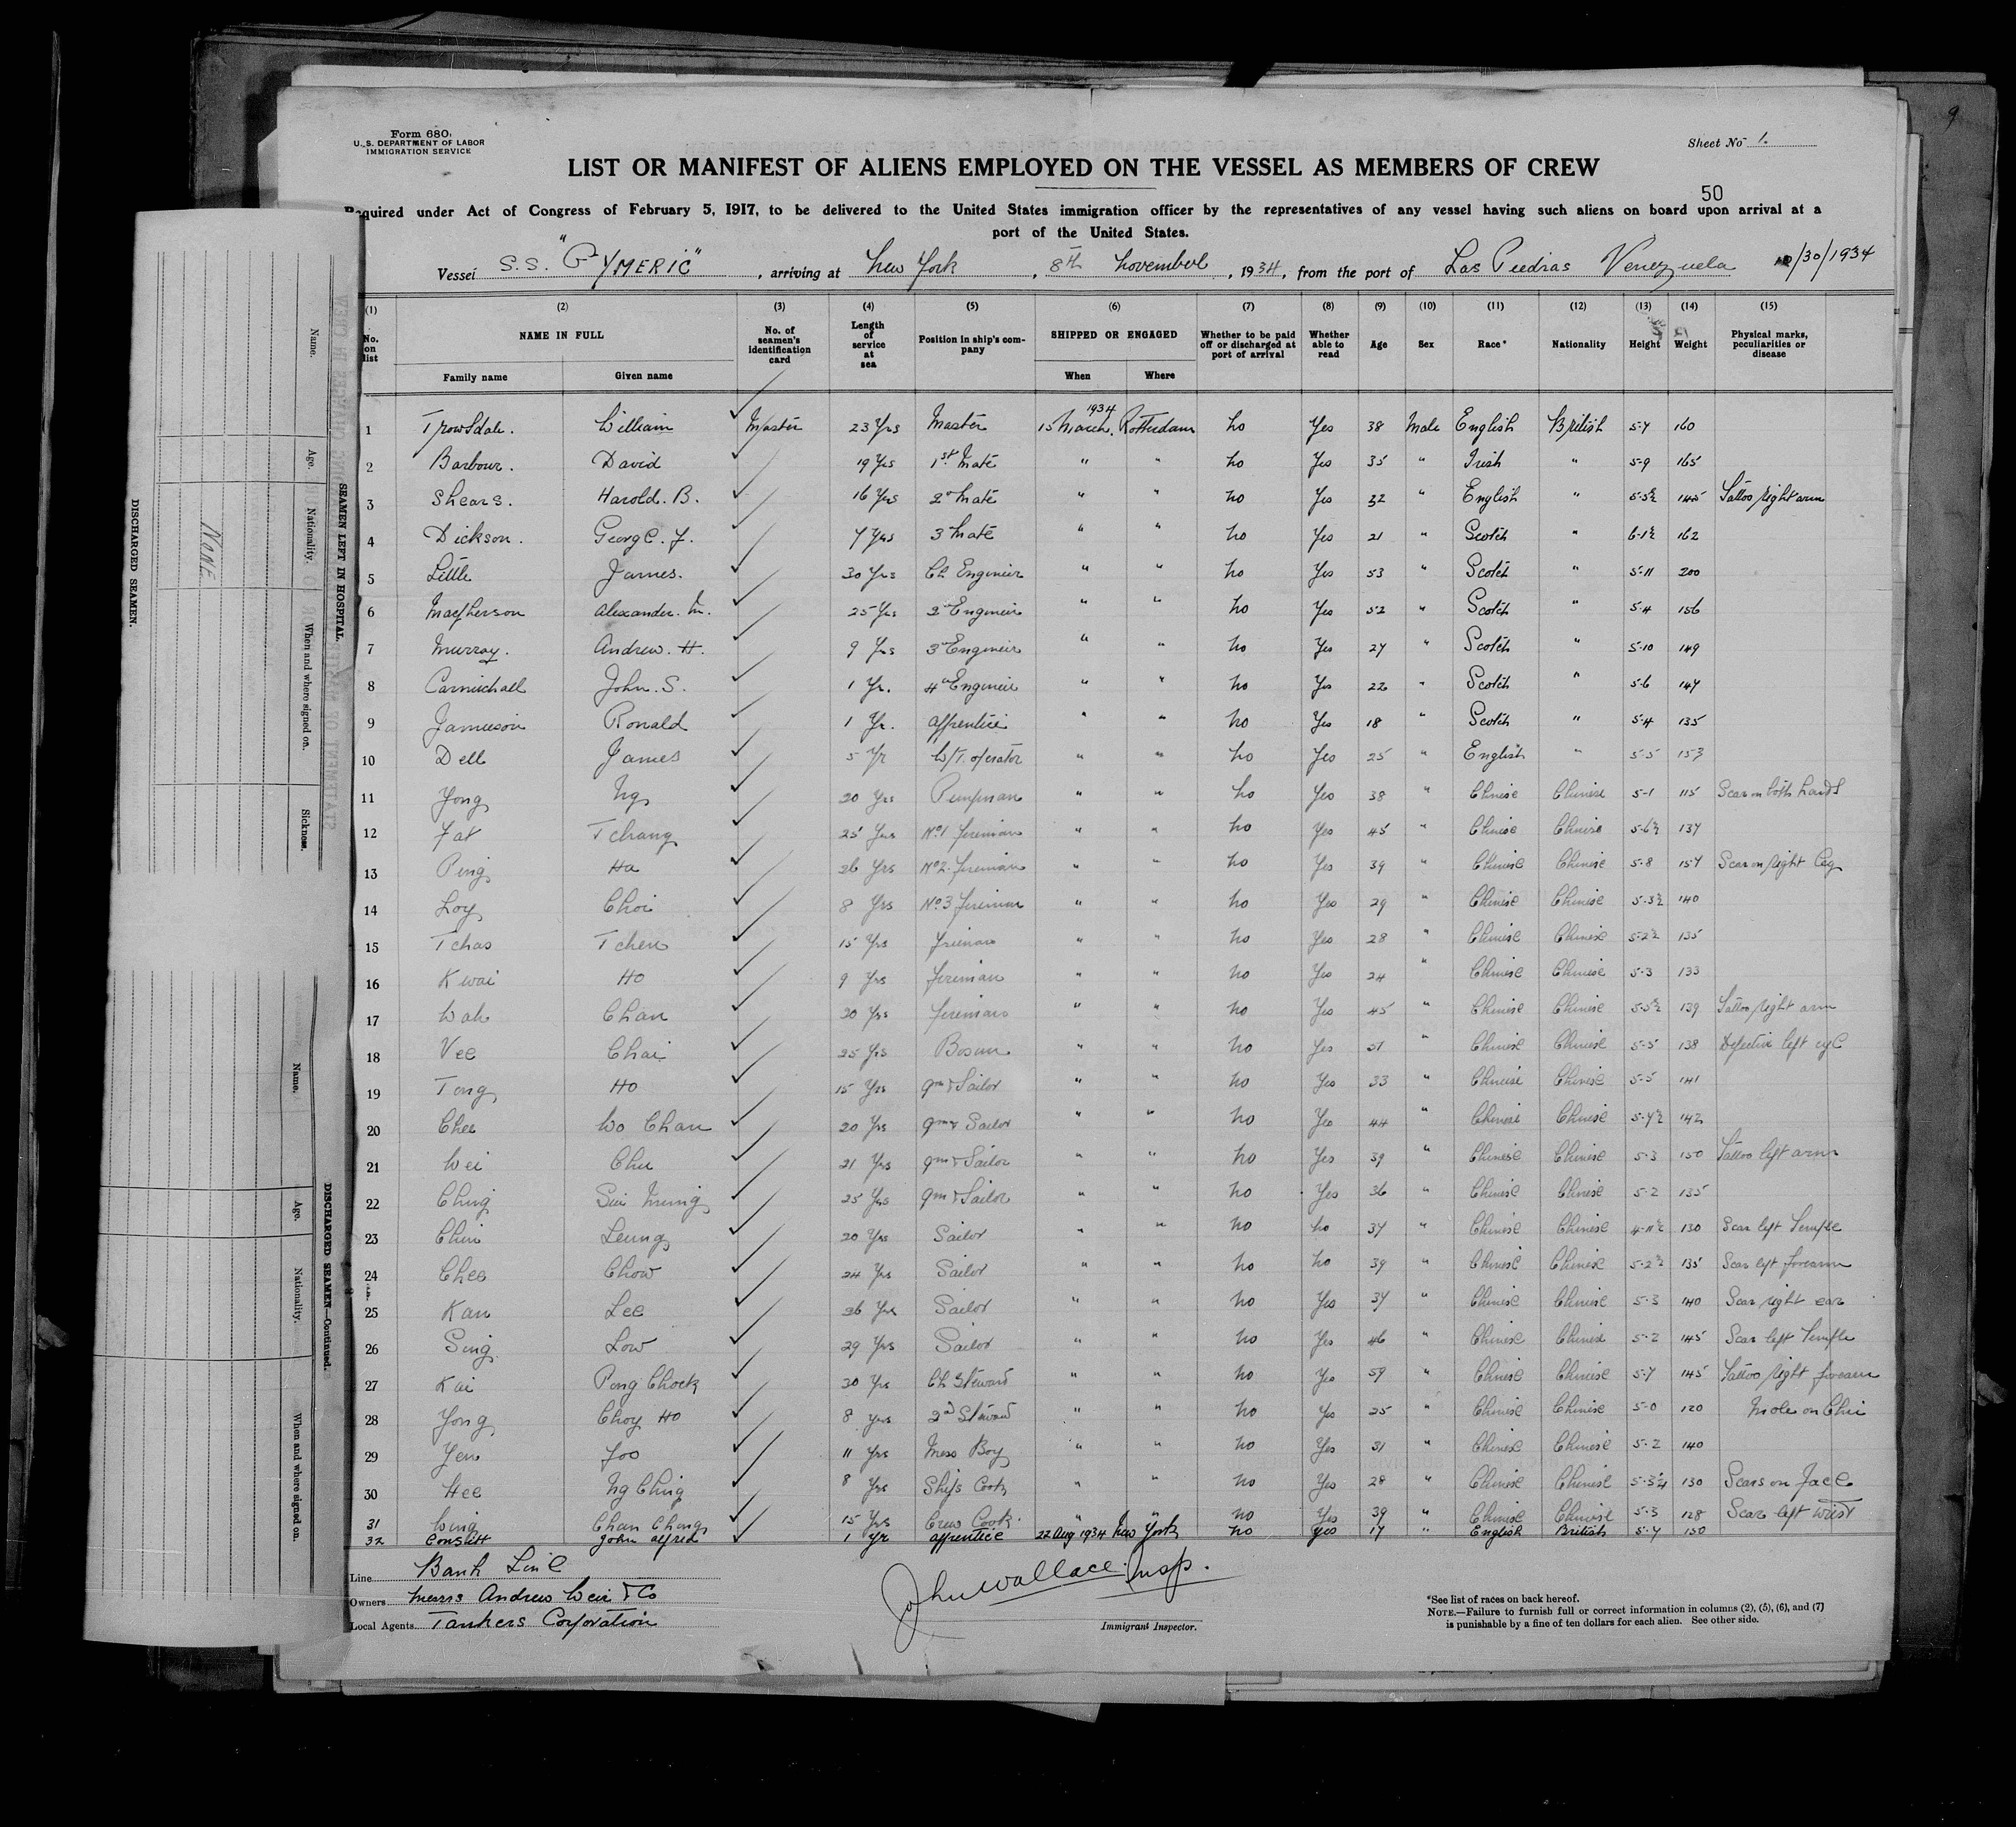 Form 680
U. S. DEPARTMENT OF LABOR
IMMIGRATION SERVICE
Sheet No 1.
9
LIST OR MANIFEST OF ALIENS EMPLOYED ON THE VESSEL AS MEMBERS OF CREW
50
Required under Act of Congress of February 5, 1917, to be delivered to the United States immigration officer by the representatives of any vessel having such aliens on board upon arrival at a
port of the United States.
Vessel S.S. "GYMERIC" , arriving at New York , 8th November , 1934, from the port of Las Piedras Venezuela 10/30/1934
(1) (2) (3) (4) (5) (6) (7) (8) (9) (10) (11) (12) (13) (14) (15)
No. on list NAME IN FULL No. of seamen's identification card Length of service at sea Position in ship's company SHIPPED OR ENGAGED Whether to be paid off or discharged at port of arrival Whether able to read Age Sex Race* Nationality Height Weight Physical marks, peculiarities or disease
Family name Given name When Where
1 Trowsdale. William Master 23 Yrs Master 1934 15 March. Rotterdam No Yes 38 Male English British 5-7 160
2 Barbour. David 19 Yrs 1st Mate " " No Yes 35 " Irish " 5-9 165
3 Shears. Harold. B. 16 Yrs 2d Mate " " No Yes 32 " English " 5-5½ 145 Tattoo right arm
4 Dickson. George. Y. 7 Yrs 3 Mate " " No Yes 21 " Scotch " 6-1½ 162
5 Little James. 30 Yrs Ch Engineer " " No Yes 53 " Scotch " 5-11 200
6 Macpherson Alexander. M. 25 Yrs 2d Engineer " " No Yes 52 " Scotch " 5-4 156
7 Murray. Andrew. H. 9 Yrs 3d Engineer " " No Yes 27 " Scotch " 5-10 149
8 Carmichall John. S. 1 Yr. 4th Engineer " " No Yes 22 " Scotch " 5-6 147
9 Jamieson Ronald 1 Yr. apprentice " " No Yes 18 " Scotch " 5-4 135
10 Dell James 5 Yr W/T. operator " " No Yes 25 " English " 5-5 153
11 Yong Ng 20 Yrs Pumpman " " No Yes 38 " Chinese Chinese 5-1 115 Scar on both hands
12 Fat Tchang 25 Yrs No1 fireman " " No Yes 45 " Chinese Chinese 5-6½ 137
13 Ping Ha 26 Yrs No2. fireman " " No Yes 39 " Chinese Chinese 5-8 157 Scar on right leg
14 Loy Choi 8 Yrs No3 fireman " " No Yes 29 " Chinese Chinese 5-3½ 140
15 Tchao Tchen 15 Yrs fireman " " No Yes 28 " Chinese Chinese 5-2½ 135
16 Kwai Ho 9 Yrs fireman " " No Yes 24 " Chinese Chinese 5-3 133
17 Wah Chan 20 Yrs fireman " " No Yes 45 " Chinese Chinese 5-5½ 139 Tattoo right arm
18 Vee Chai 25 Yrs Bosun " " No Yes 51 " Chinese Chinese 5-5 138 Defective left eye
19 Tong Ho 15 Yrs qm & Sailor " " No Yes 33 " Chinese Chinese 5-5 141
20 Chee Wo Chan 20 Yrs qm & Sailor " " No Yes 44 " Chinese Chinese 5-7½ 142
21 Wei Chu 21 Yrs qm & Sailor " " No Yes 39 " Chinese Chinese 5-3 150 Tattoo left arm
22 Ching Sui Ming 25 Yrs qm & Sailor " " No Yes 36 " Chinese Chinese 5-2 135
23 Chin Leung 20 Yrs Sailor " " No No 37 " Chinese Chinese 4-11½ 130 Scar left Temple
24 Chee Chow 24 Yrs Sailor " " No No 39 " Chinese Chinese 5-2½ 135 Scar left forearm
25 Kan Lee 26 Yrs Sailor " " No Yes 37 " Chinese Chinese 5-3 140 Scar right ear
26 Sing Low 29 Yrs Sailor " " No Yes 46 " Chinese Chinese 5-2 145 Scar left Temple
27 Kai Pong Chock 30 Yrs Ch Steward " " No Yes 59 " Chinese Chinese 5-7 145 Tattoo right forearm
28 Yong Choy Ho 8 Yrs 2nd Steward " " No Yes 25 " Chinese Chinese 5-0 120 Mole on Chin
29 Yen Foo 11 Yrs Mess Boy " " No Yes 31 " Chinese Chinese 5-2 140
30 Hee Ng Ching 8 Yrs Ships Cook " " No Yes 28 " Chinese Chinese 5-3¼ 130 Scars on face
31 Wing Chan Chong 15 Yrs Crew Cook " " No Yes 39 " Chinese Chinese 5-3 128 Scar left wrist
32 Conslitt John alfred 1 Yr apprentice 22 Aug 1934 New York No Yes 17 " English British 5-7 150
Line Bank Line
Owners Messrs Andrew Weir & Co
Local Agents Tankers Corporation
John Wallace Insp.
Immigrant Inspector.
*See list of races on back hereof.
NOTE.—Failure to furnish full or correct information in columns (2), (5), (6), and (7)
is punishable by a fine of ten dollars for each alien. See other side.
SEAMEN LEFT IN HOSPITAL.
Name. Age. Nationality. When and where signed on. Sickness.
NONE
DISCHARGED SEAMEN.
DISCHARGED SEAMEN—Continued.
Name. Age. Nationality. When and where signed on.